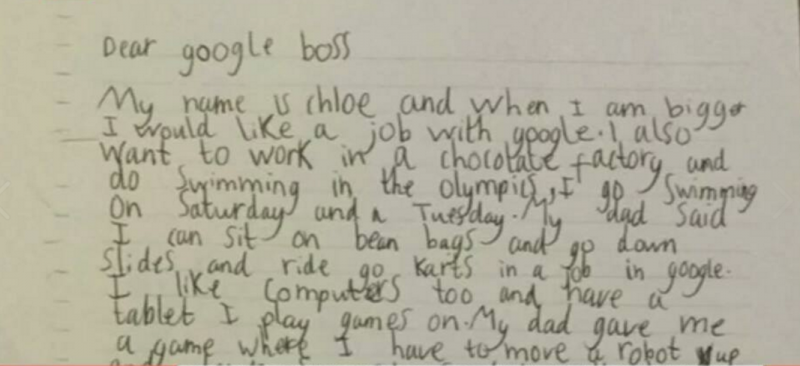 Dear google boss
My name is chloe and when I am bigger
I would like a job with google. I also
want to work in a chocolate factory and
do swimming in the olympics, I go swimming
on Saturday and a Tuesday. My dad said
I can sit on bean bags and go down
slides and ride go karts in a job in google.
I like computers too and have a
tablet I play games on. My dad gave me
a game where I have to move a robot up